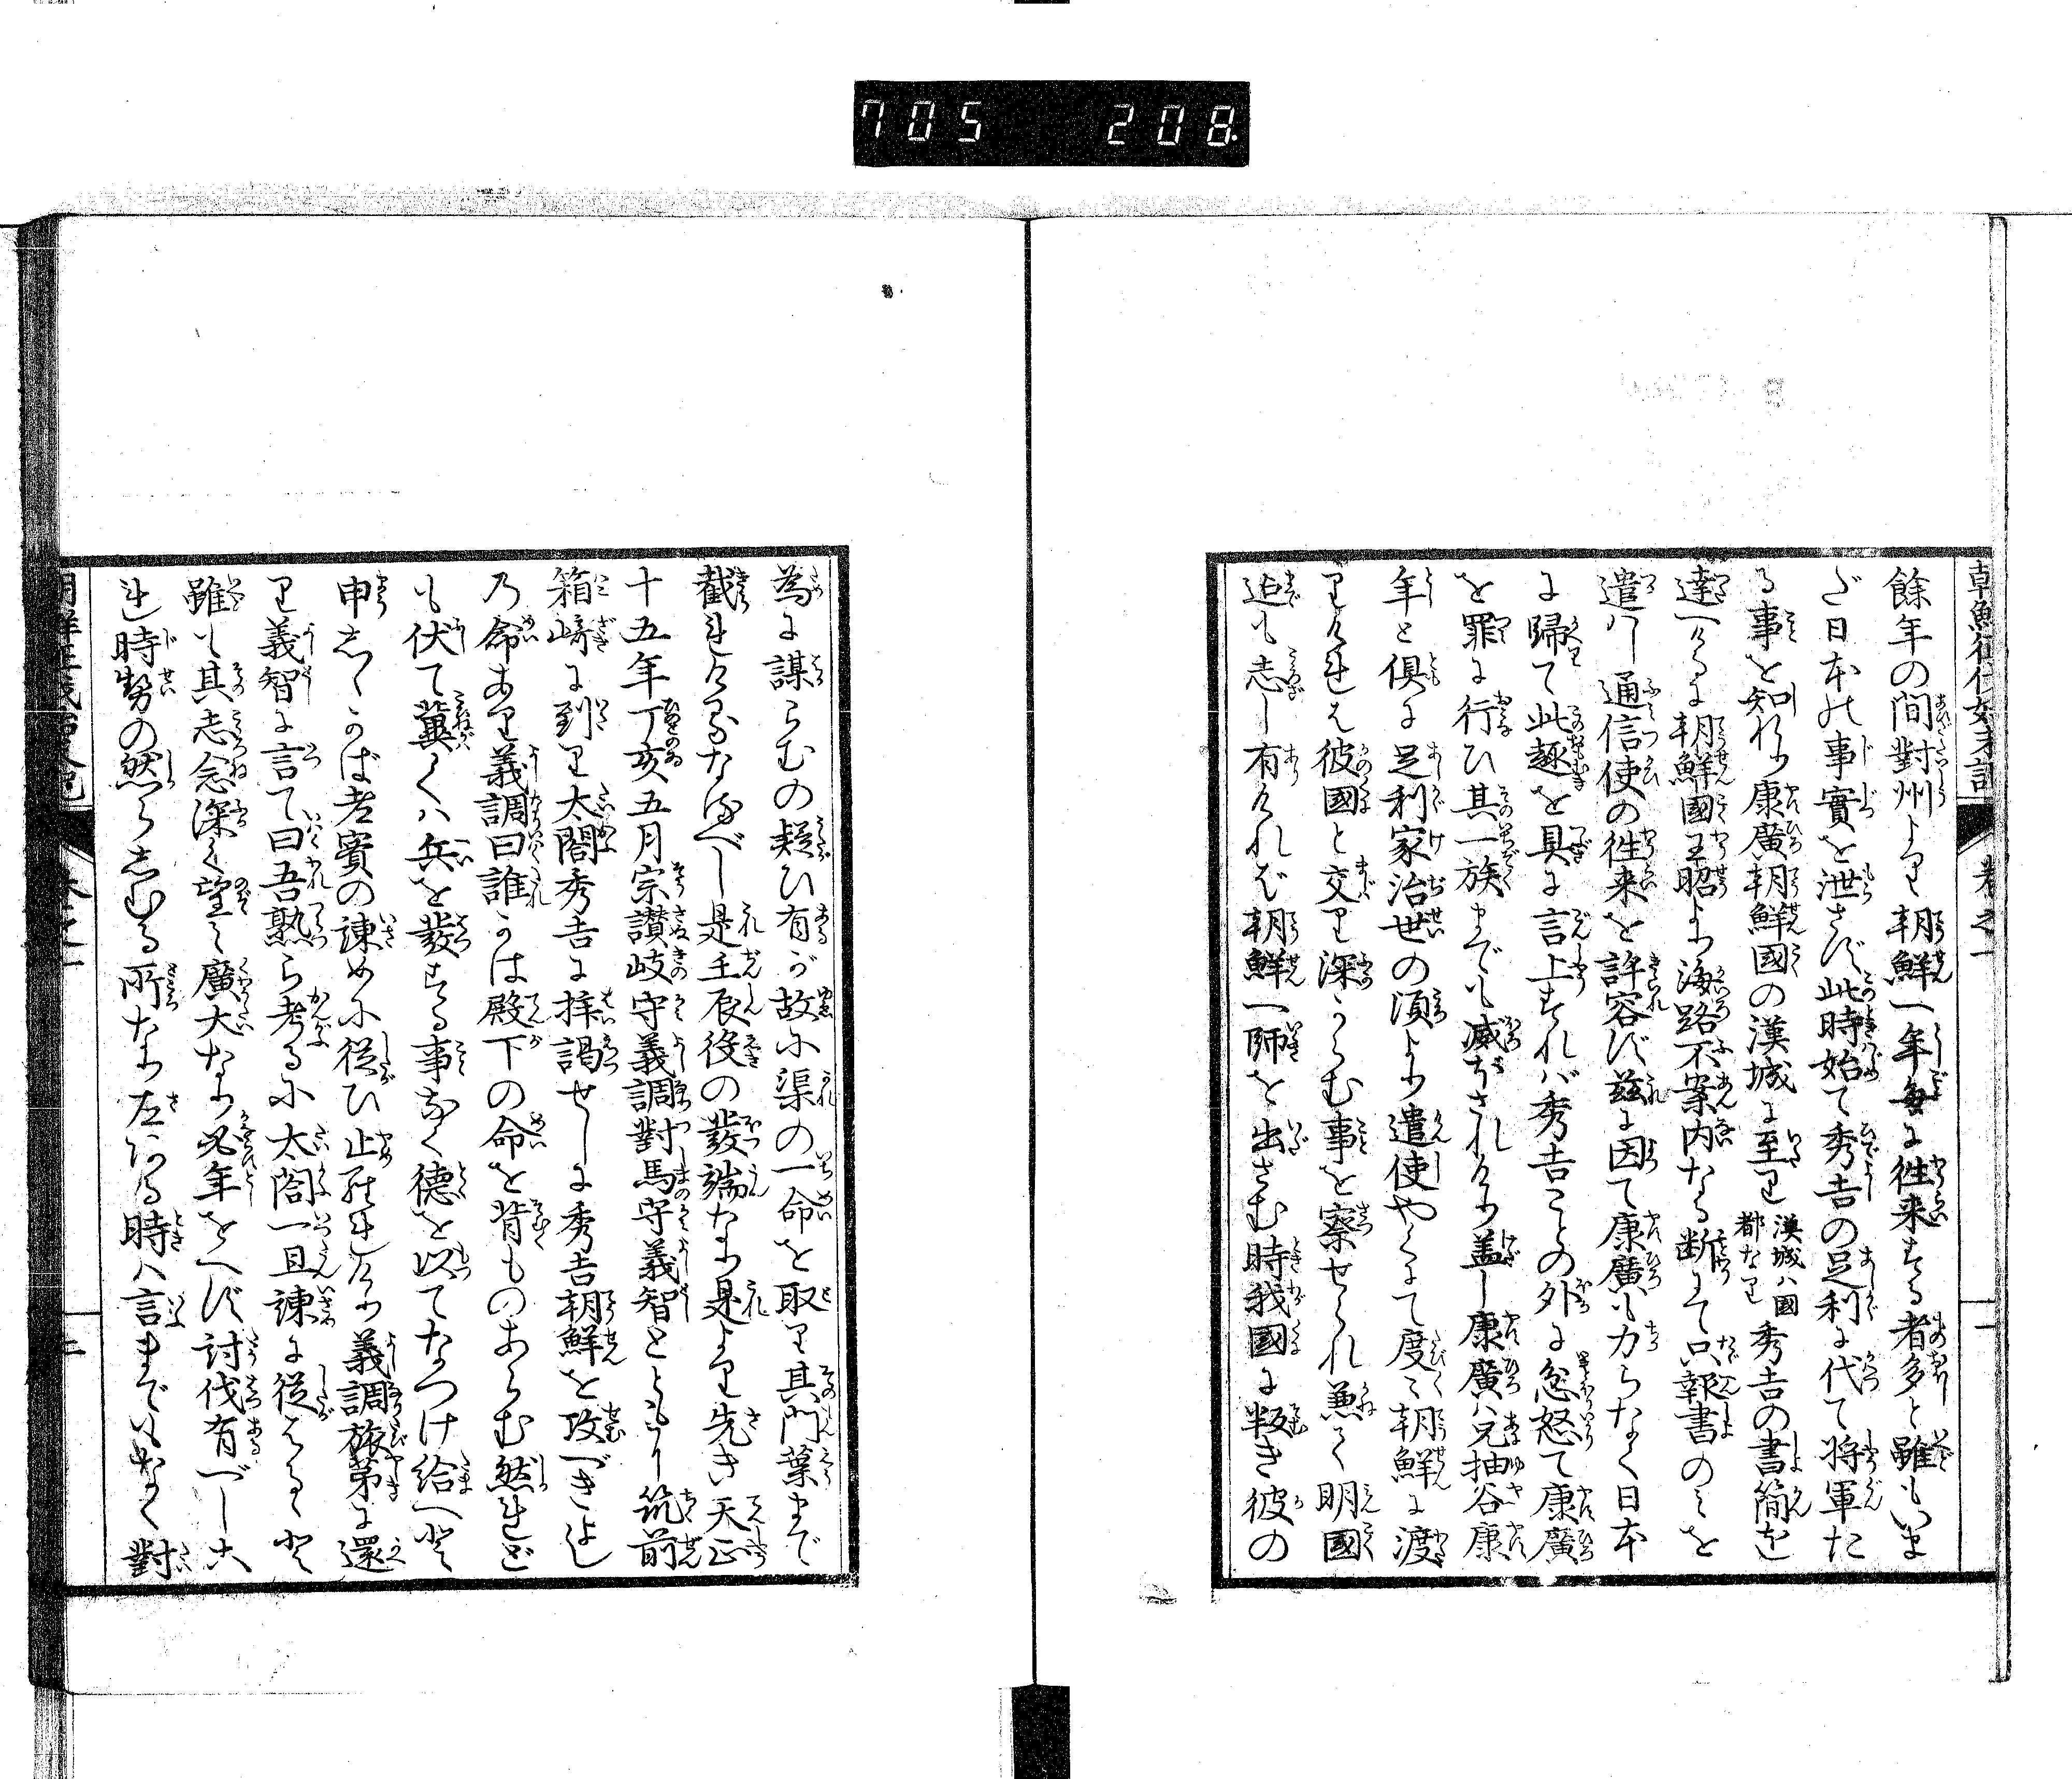 705 208
朝鮮征伐始末記
巻之一
一
餘年の間對州より朝鮮へ年毎に徃来する者多と雖もいま
だ日本の事實を泄さず此時始て秀吉の足利に代て将軍た
る事を知れり康廣朝鮮國の漢城に至り漢城ハ國都なり秀吉の書簡を
達しけるに朝鮮國王昭より海路不案内なる断にて只報書のミを
遣ハし通信使の徃来を許容ず茲に因て康廣も力らなく日本
に歸て此趣を具に言上すれバ秀吉ことの外に忿怒て康廣
を罪に行ひ其一族までも滅ぼされけり蓋し康廣ハ兄柚谷康
年と倶に足利家治世の須より遣使やくにて度〻朝鮮に渡
りけれは彼國と交り深からむ事を察せられ兼て明國
迄も志し有けれど朝鮮一師を出さむ時我國に叛き彼の
為に謀らむの疑ひ有が故に渠の一命を取り其門葉まで
截れけるなるべし是壬辰役の發端なり是より先き天正
十五年丁亥五月宗讃岐守義調對馬守義智とともに筑前
箱崎に到り太閤秀吉に拝謁せしに秀吉朝鮮を攻べきよし
乃命あり義調曰誰かは殿下の命を背ものあらむ然れど
も伏て冀くハ兵を發する事なく德を以てなつけ給へと
申しかば老實の諫めに従ひ止られけり義調旅苐に還
り義智に言て曰吾熟ら考るに太閤一旦諫に従はると
雖も其志念深く望ミ廣大なり必年をへず討伐有べし是
れ時勢の然らしむる所なり左ある時ハ言までもなく對
朝鮮征伐始末記
巻之一
二